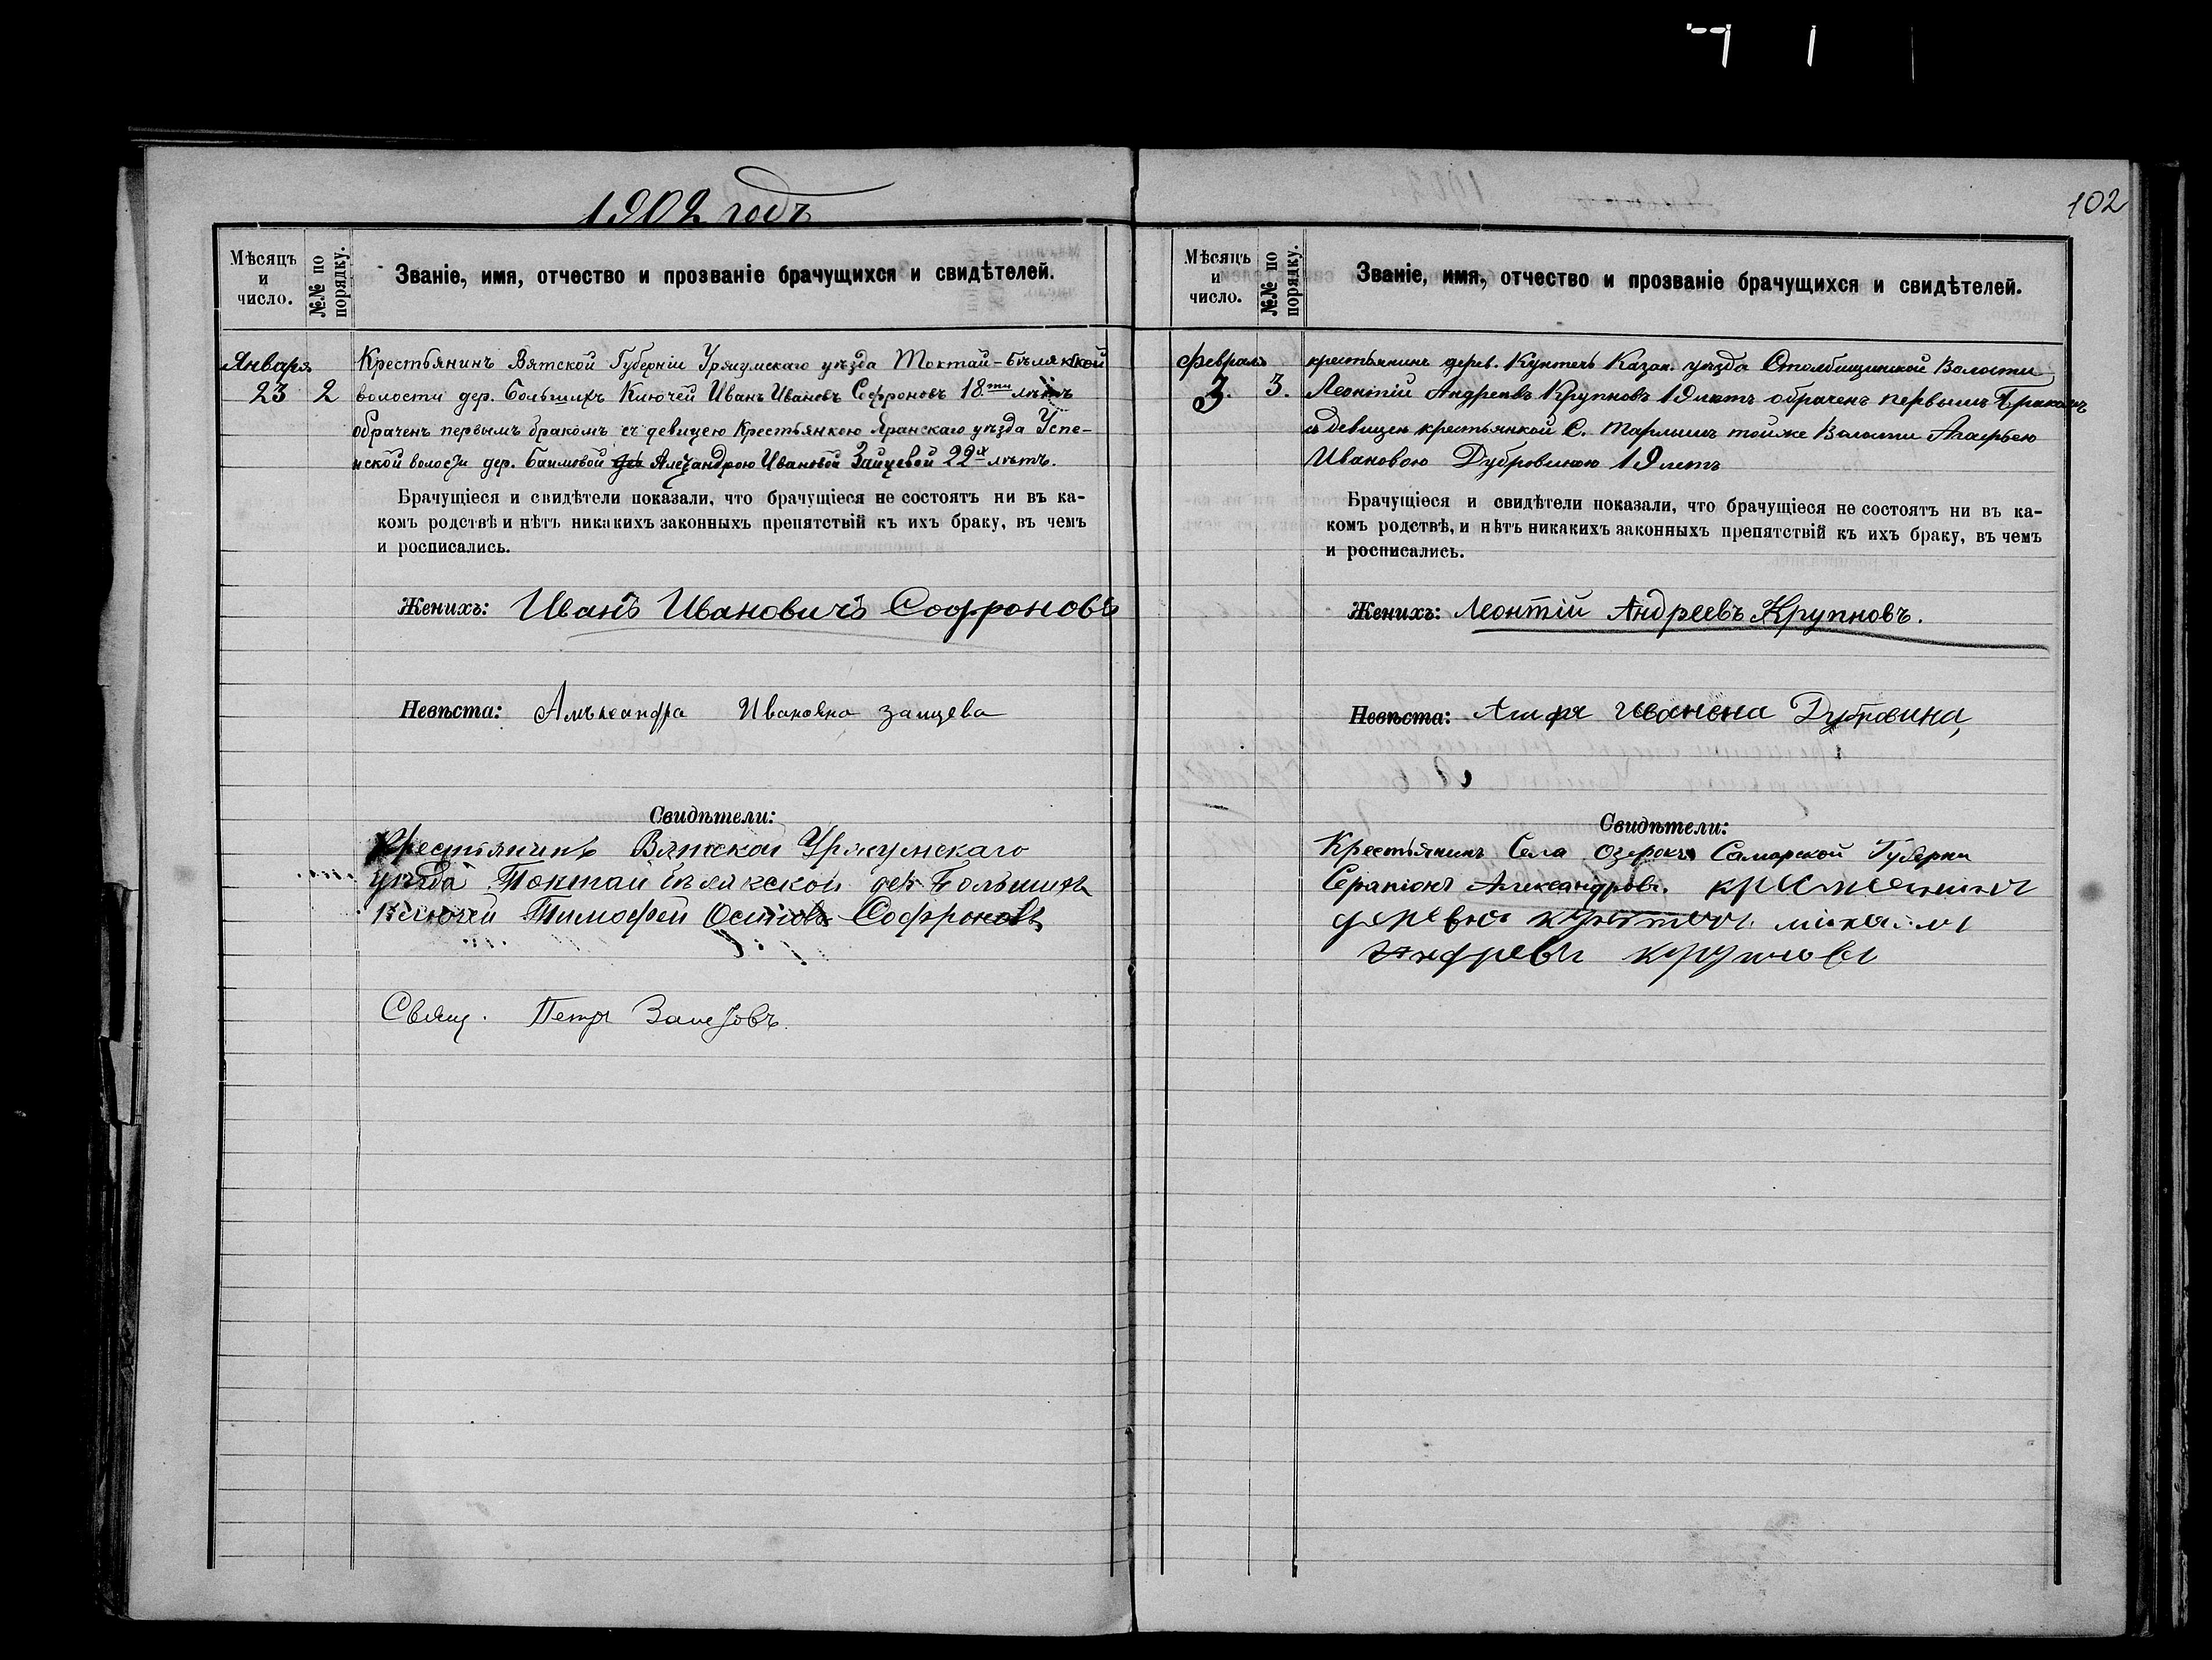 1902 годъ
Мѣсяцъ
и
число.
№№ по
порядку.
Званіе, имя, отчество и прозваніе брачущихся и свидѣтелей.
Января
23
2
Крестьянинъ Вятской Губерніи Уржумскаго уѣзда Токтай-Бѣлякской
волости дер. Большихъ Ключей Иванъ Ивановъ Софроновъ 18ти лѣтъ
обраченъ первымъ бракомъ съ девицею Крестьянкою Яранскаго уѣзда Успе-
нской волости дер. Баимовой Александрою Ивановой Зайцевой 22х лѣтъ.
Брачущіеся и свидѣтели показали, что брачущіеся не состоятъ ни въ ка-
комъ родствѣ и нѣтъ никакихъ законныхъ препятствій къ ихъ браку, въ чемъ
и росписались.
Женихъ: Иванъ Ивановичъ Софроновъ
Невѣста: Альксандра Ивановна Зайцева
Свидѣтели:
Крестьянинъ Вятской Уржумскаго
уѣзда Токтай Бѣлякской дер Большихъ
Ключей Тимофей Осиповъ Софроновъ
Свящ. Петръ
102
Мѣсяцъ
и
число.
№№ по
порядку.
Званіе, имя, отчество и прозваніе брачущихся и свидѣтелей.
Февраль
3.
3.
крестьянинъ дерев. Кунтечъ Казан. уѣзда Столбищинской Волости
Леонтій Андреевъ Крупновъ 19 летъ обраченъ первымъ Бракомъ
съ девицей крестьянкой С. Тарлаши тойже Волости Агафьею
Ивановою Дубровиною 19 летъ
Брачущіеся и свидѣтели показали, что брачущіеся не состоятъ ни въ ка-
комъ родствѣ, и нѣтъ никакихъ законныхъ препятствій къ ихъ браку, въ чемъ
и росписались.
Женихъ: Леонтій Андреевъ Крупновъ.
Невѣста: Ивановна Дубровина,
Свидѣтели:
Крестьянинъ Села Озерокъ Самарской Губерни
Серапіонъ Александровъ.